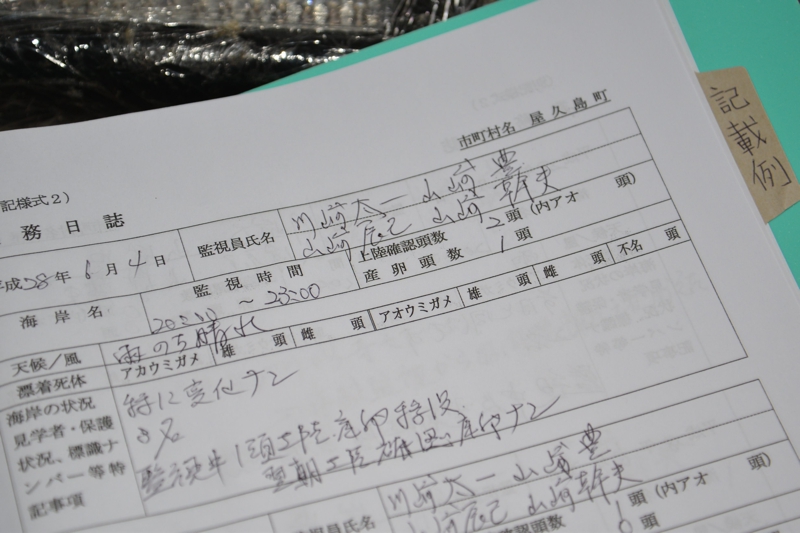 記載例
市町村名 屋久島町
記様式2)
務日誌
平成28年6月4日
監視員氏名
川崎太一 山崎 豊
山崎辰己 山崎幹夫
海岸名
監視時間
20:00 ～ 23:00
上陸確認頭数 2頭(内アオ 頭)
産卵頭数 1頭
天候/風
雨のち晴れ
漂着死体
アカウミガメ 雄 頭 雌 頭 アオウミガメ 雄 頭 雌 頭 不名 頭
海岸の状況
見学者・保護
状況、標識ナ
ンバー等特
記事項
特に変化ナシ
名
監視中1頭上陸、産卵
産卵ナシ
監視員氏名
川崎太一 山崎 豊
山崎辰己 山崎幹夫
確認頭数 1頭(内アオ
頭